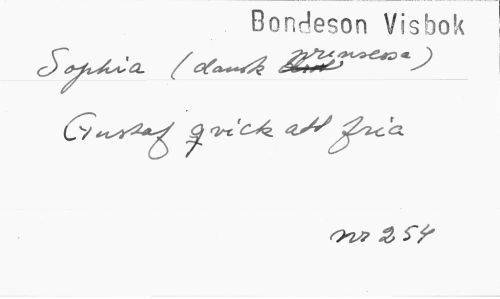 Bondeson Visbok
Sophia (dansk prinsessa)
Gustaf gvick att fria
nr 254